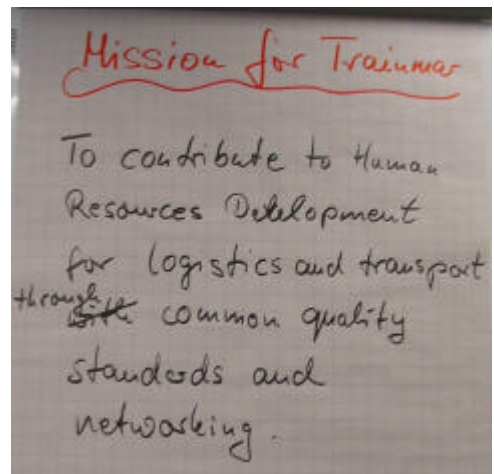 Mission for Trainmar
To contribute to Human
Resources Development
for logistics and transport
through ~~with~~ common quality
standards and
networking.